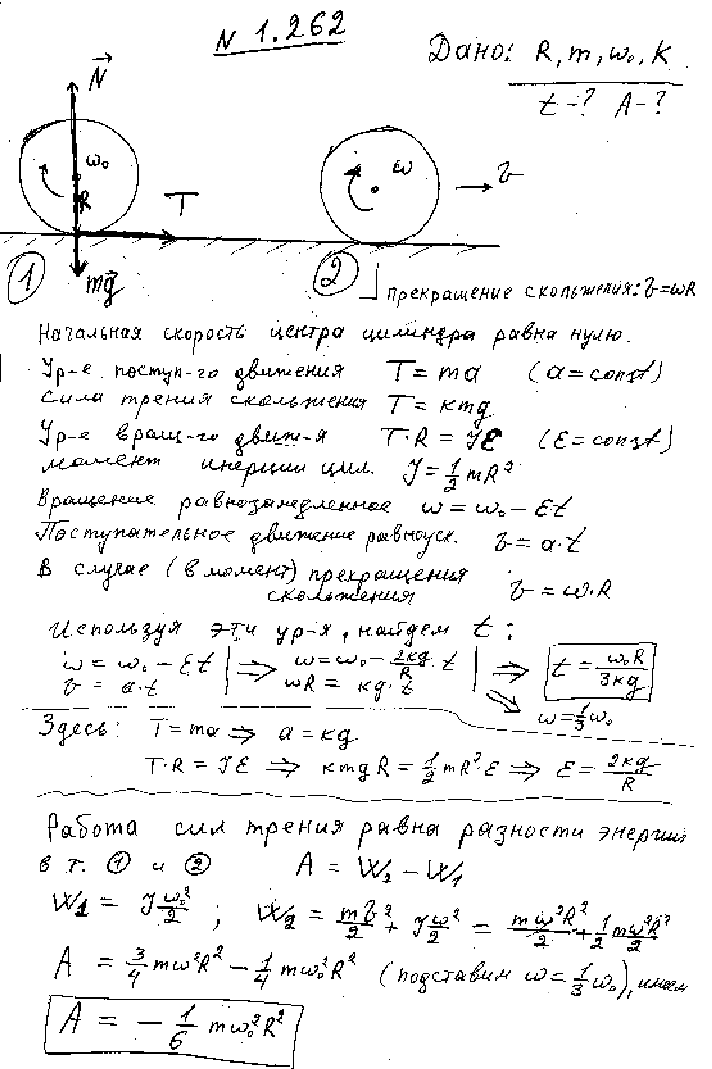 N 1.262
Дано: R, m, ω₀, K.
t-? A-?
N⃗
ω₀
R
T
mg⃗
1
ω
v
2
прекращение скольжения: v=ωR
Начальная скорость центра цилиндра равна нулю.
Ур-е поступ-го движения T = ma (a=const)
сила трения скольжения T = кmg
Ур-е вращ-го движ-я T·R = Jε (ε=const)
момент инерции цил. J = 1/2 mR²
Вращение равнозамедленное ω = ω₀ - εt
Поступательное движение равноуск. v = a·t
В случае (в момент) прекращения скольжения v = ω·R
Используя эти ур-я, найдем t:
ω = ω₀ - εt | ⇒ ω=ω₀ - 2кg/R · t | ⇒ t = ω₀R/3кg
v = a·t | ωR = кg·t | ⇒ ω=1/3 ω₀
Здесь: T=ma ⇒ a=кg
T·R = Jε ⇒ кmgR = 1/2 mR²ε ⇒ ε = 2кg/R
Работа сил трения равна разности энергии
в т. ① и ② A = W₂ - W₁
W₁ = J ω₀²/2 ; W₂ = mv²/2 + J ω²/2 = mω²R²/2 + 1/2 mω²R²/2
A = 3/4 mω²R² - 1/4 mω₀²R² (подставим ω = 1/3 ω₀), имеем
A = - 1/6 mω₀²R²